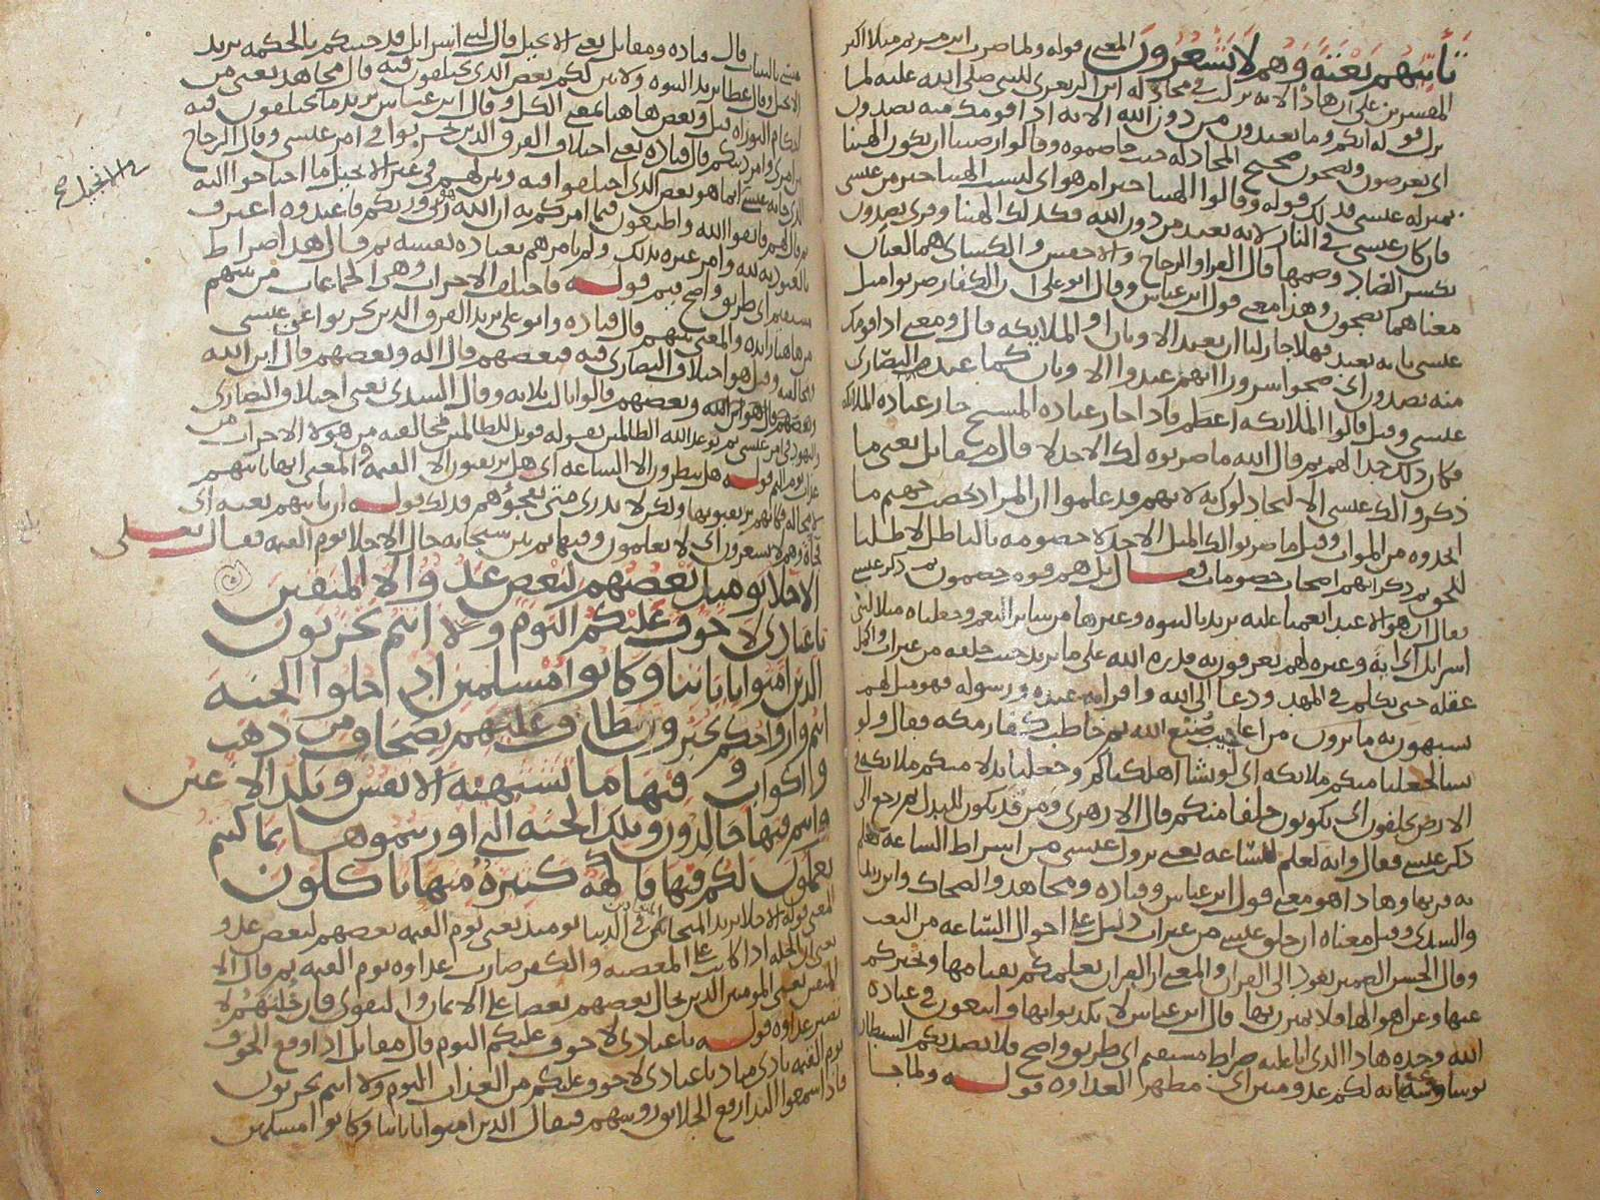 تأتيهم بغتة وهم لا يشعرون المعنى قوله ولما ضرب ابن مريم مثلا اكثر
المفسرين على ان هاذه الاية نزلت في مجادلة ابن الزبعرى للنبي صلى الله عليه لما
نزل قوله انكم وما تعبدون من دون الله الاية اذا قومك منه يصدون
اى يعرضون ويضجون ضجيج المجادلة حيث خاصموه وقالوا رضينا ان تكون الهتنا
بمنزلة عيسى فذلك قوله وقالوا االهتنا خير ام هو اى ليست الهتنا خير من عيسى
فان كان عيسى في النار لانه يعبد من دون الله فكذلك الهتنا وقرى يصدون
بكسر الصاد وضمها قال الفرا والزجاج والاخفش والكسائى هما لغتان
معناهما يضجون وهذا معنى قول ابن عباس وقال ابو على ان الكفار
عيسى بانه يعبد فهلا جاز لنا ان نعبد الاوثان او الملائكة قال ومعنى اذا قومك
منه يصدون اى ضجوا سرورا انهم عبدوا الاوثان كما عبد النصارى
عيسى وقيل قالوا الملائكة اعظم فاذا جاز عبادة المسيح جاز عبادة الملائكة
فكان ذلك جدالهم ثم قال الله ما ضربوه لك الا جدلا قال مقاتل يعنى ما
ذكروا لك عيسى الا ليجادلوك به لانهم قد علموا ان المراد بحصب جهنم ما
اتخذوه من الموات وقيل ما ضربوا لك المثل الا جدلا خصومة بالباطل لا طلبا
للحق ثم ذكر انهم اصحاب خصومات فقال بل هم قوم خصمون ثم ذكر عيسى
فقال ان هو الا عبد انعمنا عليه يريد بالنبوة وغيرها من سائر النعم وجعلناه مثلا لبنى
اسرائل اى اية وعبرة لهم يعرفون به قدرة الله على ما يريد حيث خلقه من غير اب
عقله حتى تكلم في المهد ودعا الى الله واقر انه عبده ورسوله فهو مثل لهم
يشبهون به ما يرون من اعاجيب صنع الله ثم خاطب كفار مكة فقال ولو
نشا لجعلنا منكم ملائكة اى لو نشا اهلكناكم وجعلنا بدلا منكم ملائكة في
الارض يخلفون اى يكونون خلفا منكم قال الازهرى ومن قد يكون للبدل ثم رجع الى
ذكر عيسى فقال وانه لعلم للساعة يعنى نزول عيسى من اشراط الساعة
به قربها وهاذا هو معنى قول ابن عباس وقتادة ومجاهد والضحاك وابن زيد
والسدى وقيل معناه ان خلق عيسى من غير اب دليل على احوال الساعة من البعث
وقال الحسن الضمير يعود الى القران والمعنى ان القران يعلمكم بقيامها ويخبركم
عنها وعن اهوالها فلا تمترن بها قال ابن عباس لا تكذبوا بها واتبعون في عبادة
الله وحده هاذا الذى انا عليه صراط مستقيم اى طريق واضح فلا يصدنكم الشيطان
بوساوسه انه لكم عدو مبين اى مظهر العداوة قوله ولما جا
عيسى بالبينات قال قتادة ومقاتل يعنى الانجيل قال لبنى اسرائل قد جئتكم بالحكمة يريد
الانجيل وقال عطا يريد النبوة ولابين لكم بعض الذى تختلفون فيه قال مجاهد يعنى من
احكام التوراة قيل وبعض هاهنا بمعنى الكل وقال ابن عباس يريد ما تختلفون فيه
من امرى وامر دينكم قال قتادة يعنى اختلاف الفرق الذين تحزبوا في امر عيسى وقال الزجاج
الذى جا به عيسى انما هو بعض الذى اختلفوا فيه وبين لهم في غير الانجيل ما احتاجوا اليه
ثم قال لهم فاتقوا الله واطيعون فيما امركم به ان الله هو ربى وربكم فاعبدوه اعترف
بالعبودية لله وامر غيره بذلك ولم يامرهم بعبادة نفسه ثم قال هذا صراط
مستقيم اى طريق واضح قيم قوله فاختلف الاحزاب وهم الجماعات من بينهم
من هاهنا زائدة والمعنى بينهم قال قتادة وابو على يريد الفرق الذين تحزبوا عن عيسى
وقيل هو اختلاف النصارى فيه فبعضهم قال اله وبعضهم قال ابن الله
وبعضهم قالوا ثالث ثلاثة وقال السدى يعنى اختلاف النصارى
واليهود في امر عيسى ثم توعد الله الظالمين بقوله فويل للظالمين بمخالفته من هولا الاحزاب من
عذاب يوم اليم قوله هل ينظرون الا الساعة اى هل يرتقبون الا القيمة والمعنى انها تاتيهم
لا محالة فكانهم يرتقبونها ولكن لا تدرى متى تفجؤهم فذلك قوله ان تاتيهم بغتة اى
فجاة وهم لا يشعرون اى لا يعلمون وقتها ثم بين سبحانه حال الاخلا يوم القيمة فقال تعالى
الاخلا يومئذ بعضهم لبعض عدو الا المتقين
يا عبادى لا خوف عليكم اليوم ولا انتم تحزنون
الذين امنوا باياتنا وكانوا مسلمين ادخلوا الجنة
انتم وازواجكم تحبرون يطاف عليهم بصحاف من ذهب
واكواب وفيها ما تشتهيه الانفس وتلذ الاعين
وانتم فيها خالدون وتلك الجنة التى اورثتموها بما كنتم
تعملون لكم فيها فاكهة كثيرة منها تاكلون
المعنى قوله الاخلا يريد المتحابين في الدنيا يومئذ يعنى يوم القيمة بعضهم لبعض عدو
يعنى ان الخلة اذا كانت على المعصية والكفر صارت عداوة يوم القيمة ثم قال الا
المتقين يعنى المومنين الذين يخال بعضهم بعضا على الايمان والتقوى فان خلتهم لا
تصير عداوة قوله يا عبادى لا خوف عليكم اليوم قال مقاتل اذا وقع الخوف
يوم القيمة نادى مناد يا عبادى لا خوف عليكم من العذاب اليوم ولا انتم تحزنون
فاذا سمعوا الندا رفع الخلائق روسهم فيقال الذين امنوا باياتنا وكانوا مسلمين
والانجيل صح